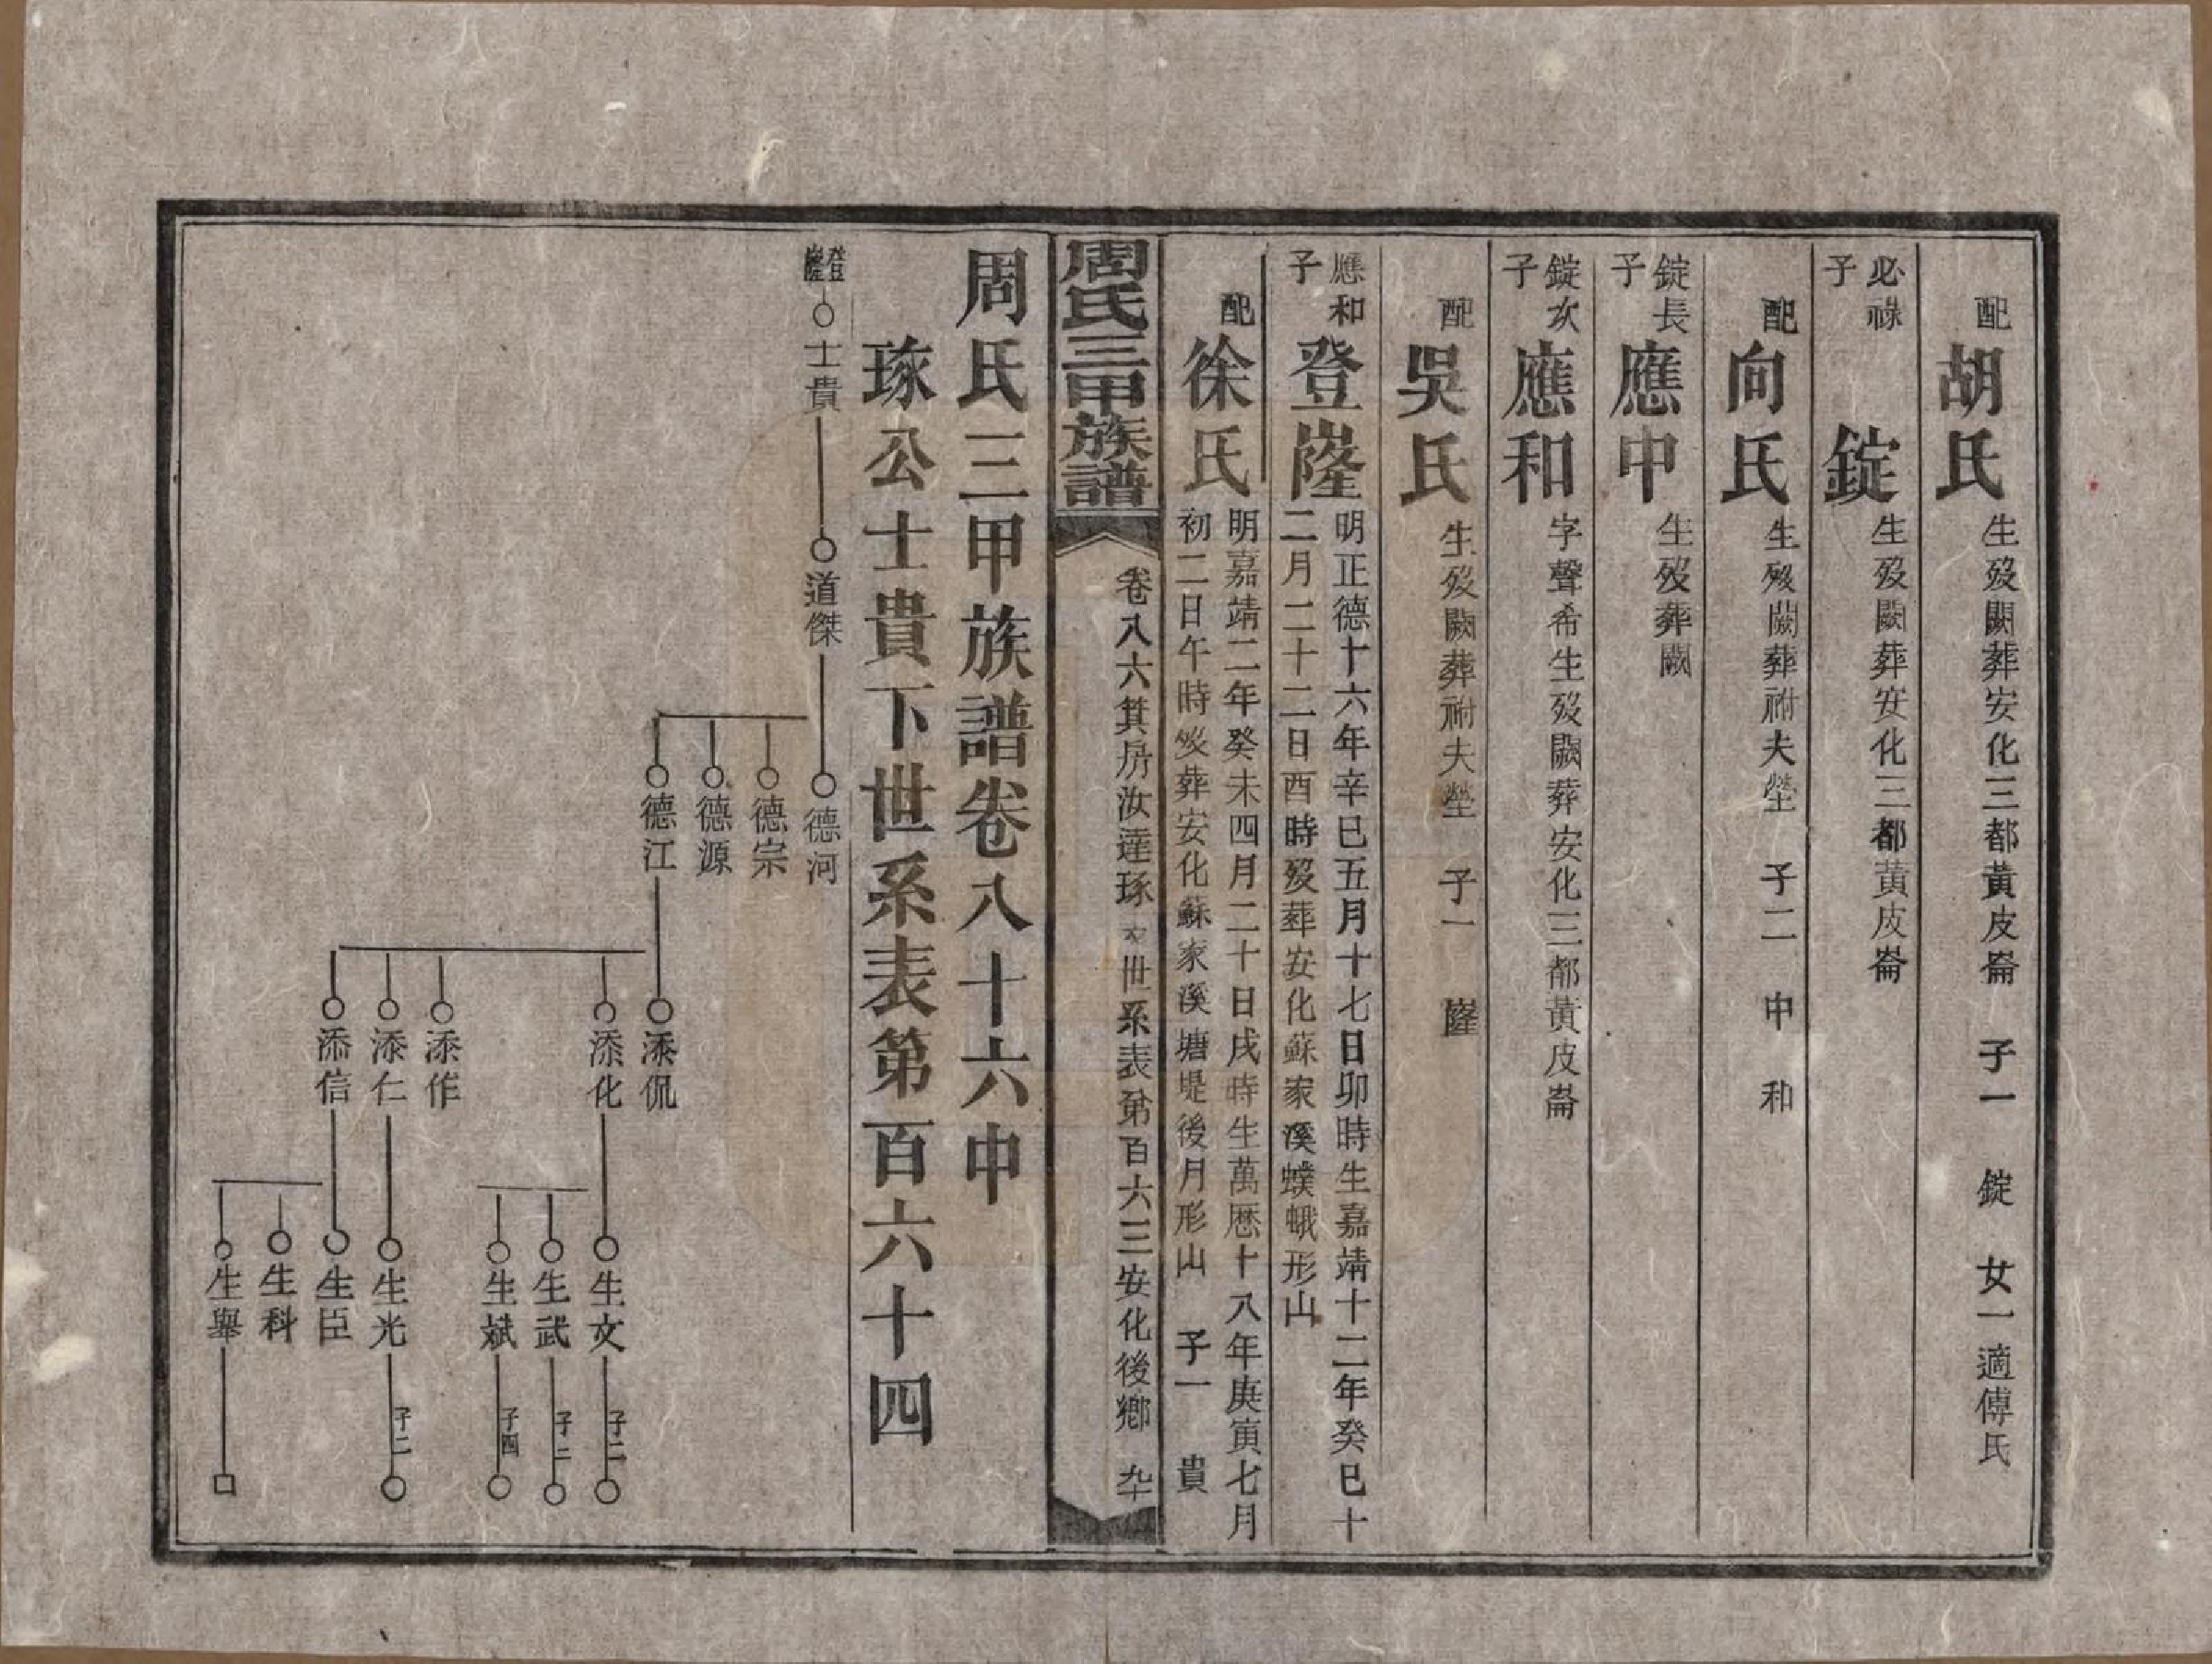 配 胡氏 生歿闕葬安化三都黃皮崙 子一 錠 女一適傅氏
必祿子 錠 生歿闕葬安化三都黃皮崙
配 向氏 生歿闕葬祔夫塋 子二 中 和
錠長子 應中 生歿葬闕
錠次子 應和 字聲希生歿闕葬安化三都黃皮崙
配 吳氏 生歿闕葬祔夫塋 子一 隆
應和子 登隆 明正德十六年辛巳五月十七日卯時生嘉靖十二年癸巳十
二月二十二日酉時歿葬安化蘇家溪蟆蛾形山
配 徐氏 明嘉靖二年癸未四月二十日戌時生萬曆十八年庚寅七月
初二日午時歿葬安化蘇家溪塘堤後月形山 子一 貴
周氏三甲族譜
卷八六箕房汝達琢 世系表第百六三安化後鄉 九十
周氏三甲族譜卷八十六中
琢公士貴下世系表第百六十四
登隆 士貴
道傑
德河
德宗
德源
德江
添侃
添化
添作
添仁
添信
生文 子二
生武 子二
生斌 子四
生光 子二
生臣
生科
生舉